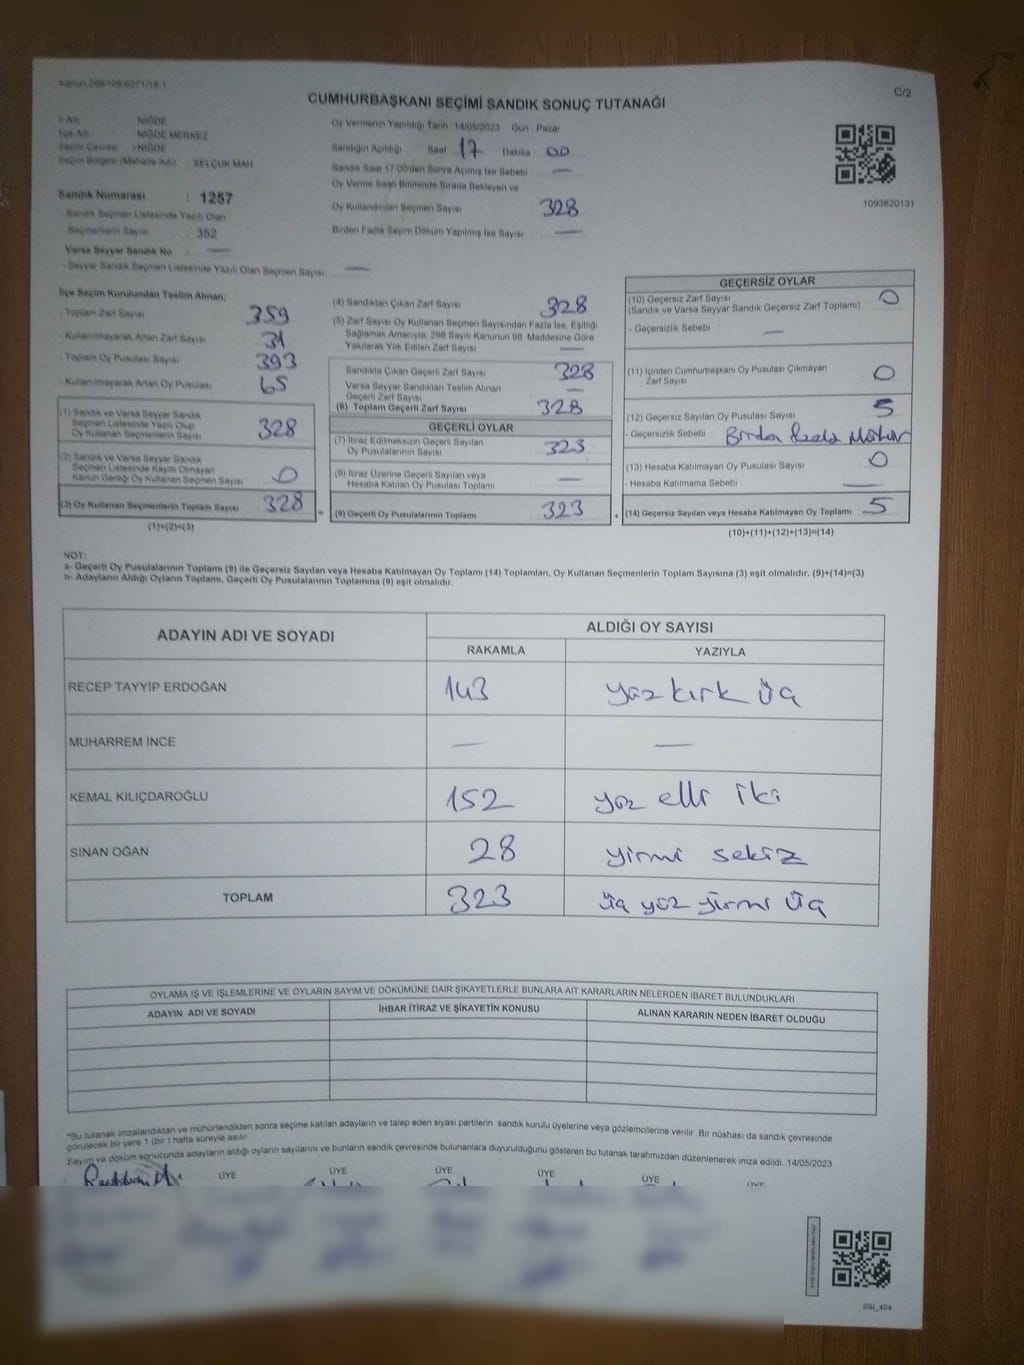 Kanun:298/105,6271/18-1
C/2
CUMHURBAŞKANI SEÇİMİ SANDIK SONUÇ TUTANAĞI
İl Adı : NİĞDE
İlçe Adı : NİĞDE MERKEZ
Seçim Çevresi : NİĞDE
Seçim Bölgesi (Mahalle Adı) : SELÇUK MAH
Sandık Numarası : 1257
- Sandık Seçmen Listesinde Yazılı Olan
Seçmenlerin Sayısı : 352
Varsa Seyyar Sandık No —
- Seyyar Sandık Seçmen Listesinde Yazılı Olan Seçmen Sayısı —
Oy Vermenin Yapıldığı Tarih 14/05/2023 Gün Pazar
Sandığın Açıldığı Saat 17 Dakika 00
Sandık Saat 17:00'den Sonra Açılmış İse Sebebi —
Oy Verme Saati Bitiminde Sırada Bekleyen ve
Oy Kullandırılan Seçmen Sayısı 328
Birden Fazla Sayım Döküm Yapılmış İse Sayısı —
1093620131
İlçe Seçim Kurulundan Teslim Alınan;
- Toplam Zarf Sayısı 359
- Kullanılmayarak Artan Zarf Sayısı 31
- Toplam Oy Pusulası Sayısı 393
- Kullanılmayarak Artan Oy Pusulası 65
(1) Sandık ve Varsa Seyyar Sandık
Seçmen Listesinde Yazılı Olup
Oy Kullanan Seçmenlerin Sayısı 328
(2) Sandık ve Varsa Seyyar Sandık
Seçmen Listesinde Kayıtlı Olmayan
Kanun Gereği Oy Kullanan Seçmen Sayısı 0
(3) Oy Kullanan Seçmenlerin Toplam Sayısı 328
(1)+(2)=(3)
(4) Sandıktan Çıkan Zarf Sayısı 328
(5) Zarf Sayısı Oy Kullanan Seçmen Sayısından Fazla İse, Eşitliği
Sağlamak Amacıyla, 298 Sayılı Kanunun 98. Maddesine Göre
Yakılarak Yok Edilen Zarf Sayısı —
Sandıkta Çıkan Geçerli Zarf Sayısı 328
Varsa Seyyar Sandıktan Teslim Alınan
Geçerli Zarf Sayısı —
(6) Toplam Geçerli Zarf Sayısı 328
GEÇERLİ OYLAR
(7) İtiraz Edilmeksizin Geçerli Sayılan
Oy Pusulalarının Sayısı 323
(8) İtiraz Üzerine Geçerli Sayılan veya
Hesaba Katılan Oy Pusulası Toplamı —
= (9) Geçerli Oy Pusulalarının Toplamı 323 +
GEÇERSİZ OYLAR
(10) Geçersiz Zarf Sayısı 0
(Sandık ve Varsa Seyyar Sandık Geçersiz Zarf Toplamı)
- Geçersizlik Sebebi —
(11) İçinden Cumhurbaşkanı Oy Pusulası Çıkmayan
Zarf Sayısı 0
(12) Geçersiz Sayılan Oy Pusulası Sayısı 5
- Geçersizlik Sebebi Birden Fazla Mühür
(13) Hesaba Katılmayan Oy Pusulası Sayısı 0
- Hesaba Katılmama Sebebi —
(14) Geçersiz Sayılan veya Hesaba Katılmayan Oy Toplamı 5
(10)+(11)+(12)+(13)=(14)
NOT:
a- Geçerli Oy Pusulalarının Toplamı (9) ile Geçersiz Sayılan veya Hesaba Katılmayan Oy Toplamı (14) Toplamları, Oy Kullanan Seçmenlerin Toplam Sayısına (3) eşit olmalıdır. (9)+(14)=(3)
b- Adayların Aldığı Oyların Toplamı, Geçerli Oy Pusulalarının Toplamına (9) eşit olmalıdır.
ADAYIN ADI VE SOYADI
ALDIĞI OY SAYISI
RAKAMLA YAZIYLA
RECEP TAYYİP ERDOĞAN 143 yüz kırk üç
MUHARREM İNCE — —
KEMAL KILIÇDAROĞLU 152 yüz elli iki
SİNAN OĞAN 28 yirmi sekiz
TOPLAM 323 üç yüz yirmi üç
OYLAMA İŞ VE İŞLEMLERİNE VE OYLARIN SAYIM VE DÖKÜMÜNE DAİR ŞİKAYETLERLE BUNLARA AİT KARARLARIN NELERDEN İBARET BULUNDUKLARI
ADAYIN ADI VE SOYADI İHBAR İTİRAZ VE ŞİKAYETİN KONUSU ALINAN KARARIN NEDEN İBARET OLDUĞU
*Bu tutanak imzalandıktan ve mühürlendikten sonra seçime katılan adayların ve talep eden siyasi partilerin sandık kurulu üyelerine veya gözlemcilerine verilir. Bir nüshası da sandık çevresinde
görülecek bir yere 1 (bir) hafta süreyle asılır.
Sayım ve döküm sonucunda adayların aldığı oyların sayılarını ve bunların sandık çevresinde bulunanlara duyurulduğunu gösteren bu tutanak tarafımızdan düzenlenerek imza edildi. 14/05/2023
ÜYE ÜYE ÜYE ÜYE ÜYE ÜYE
SSI_404